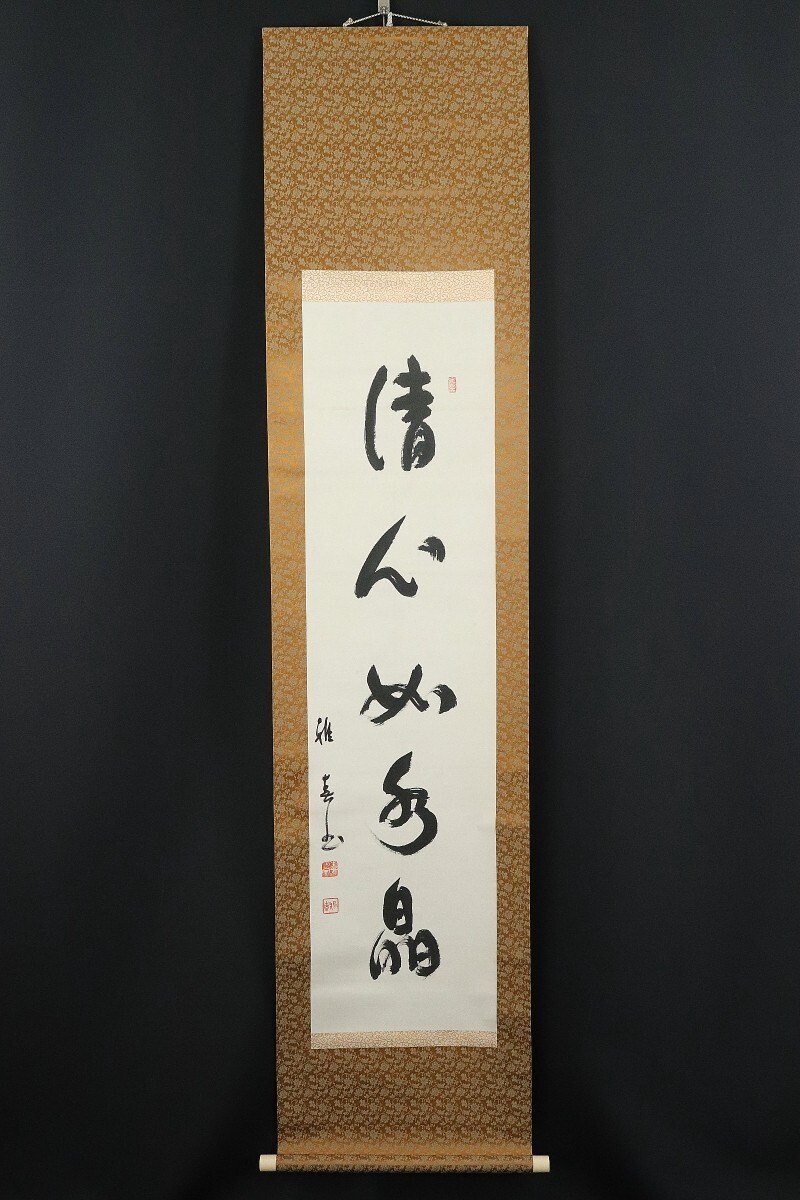 清心如水晶
雅喜書